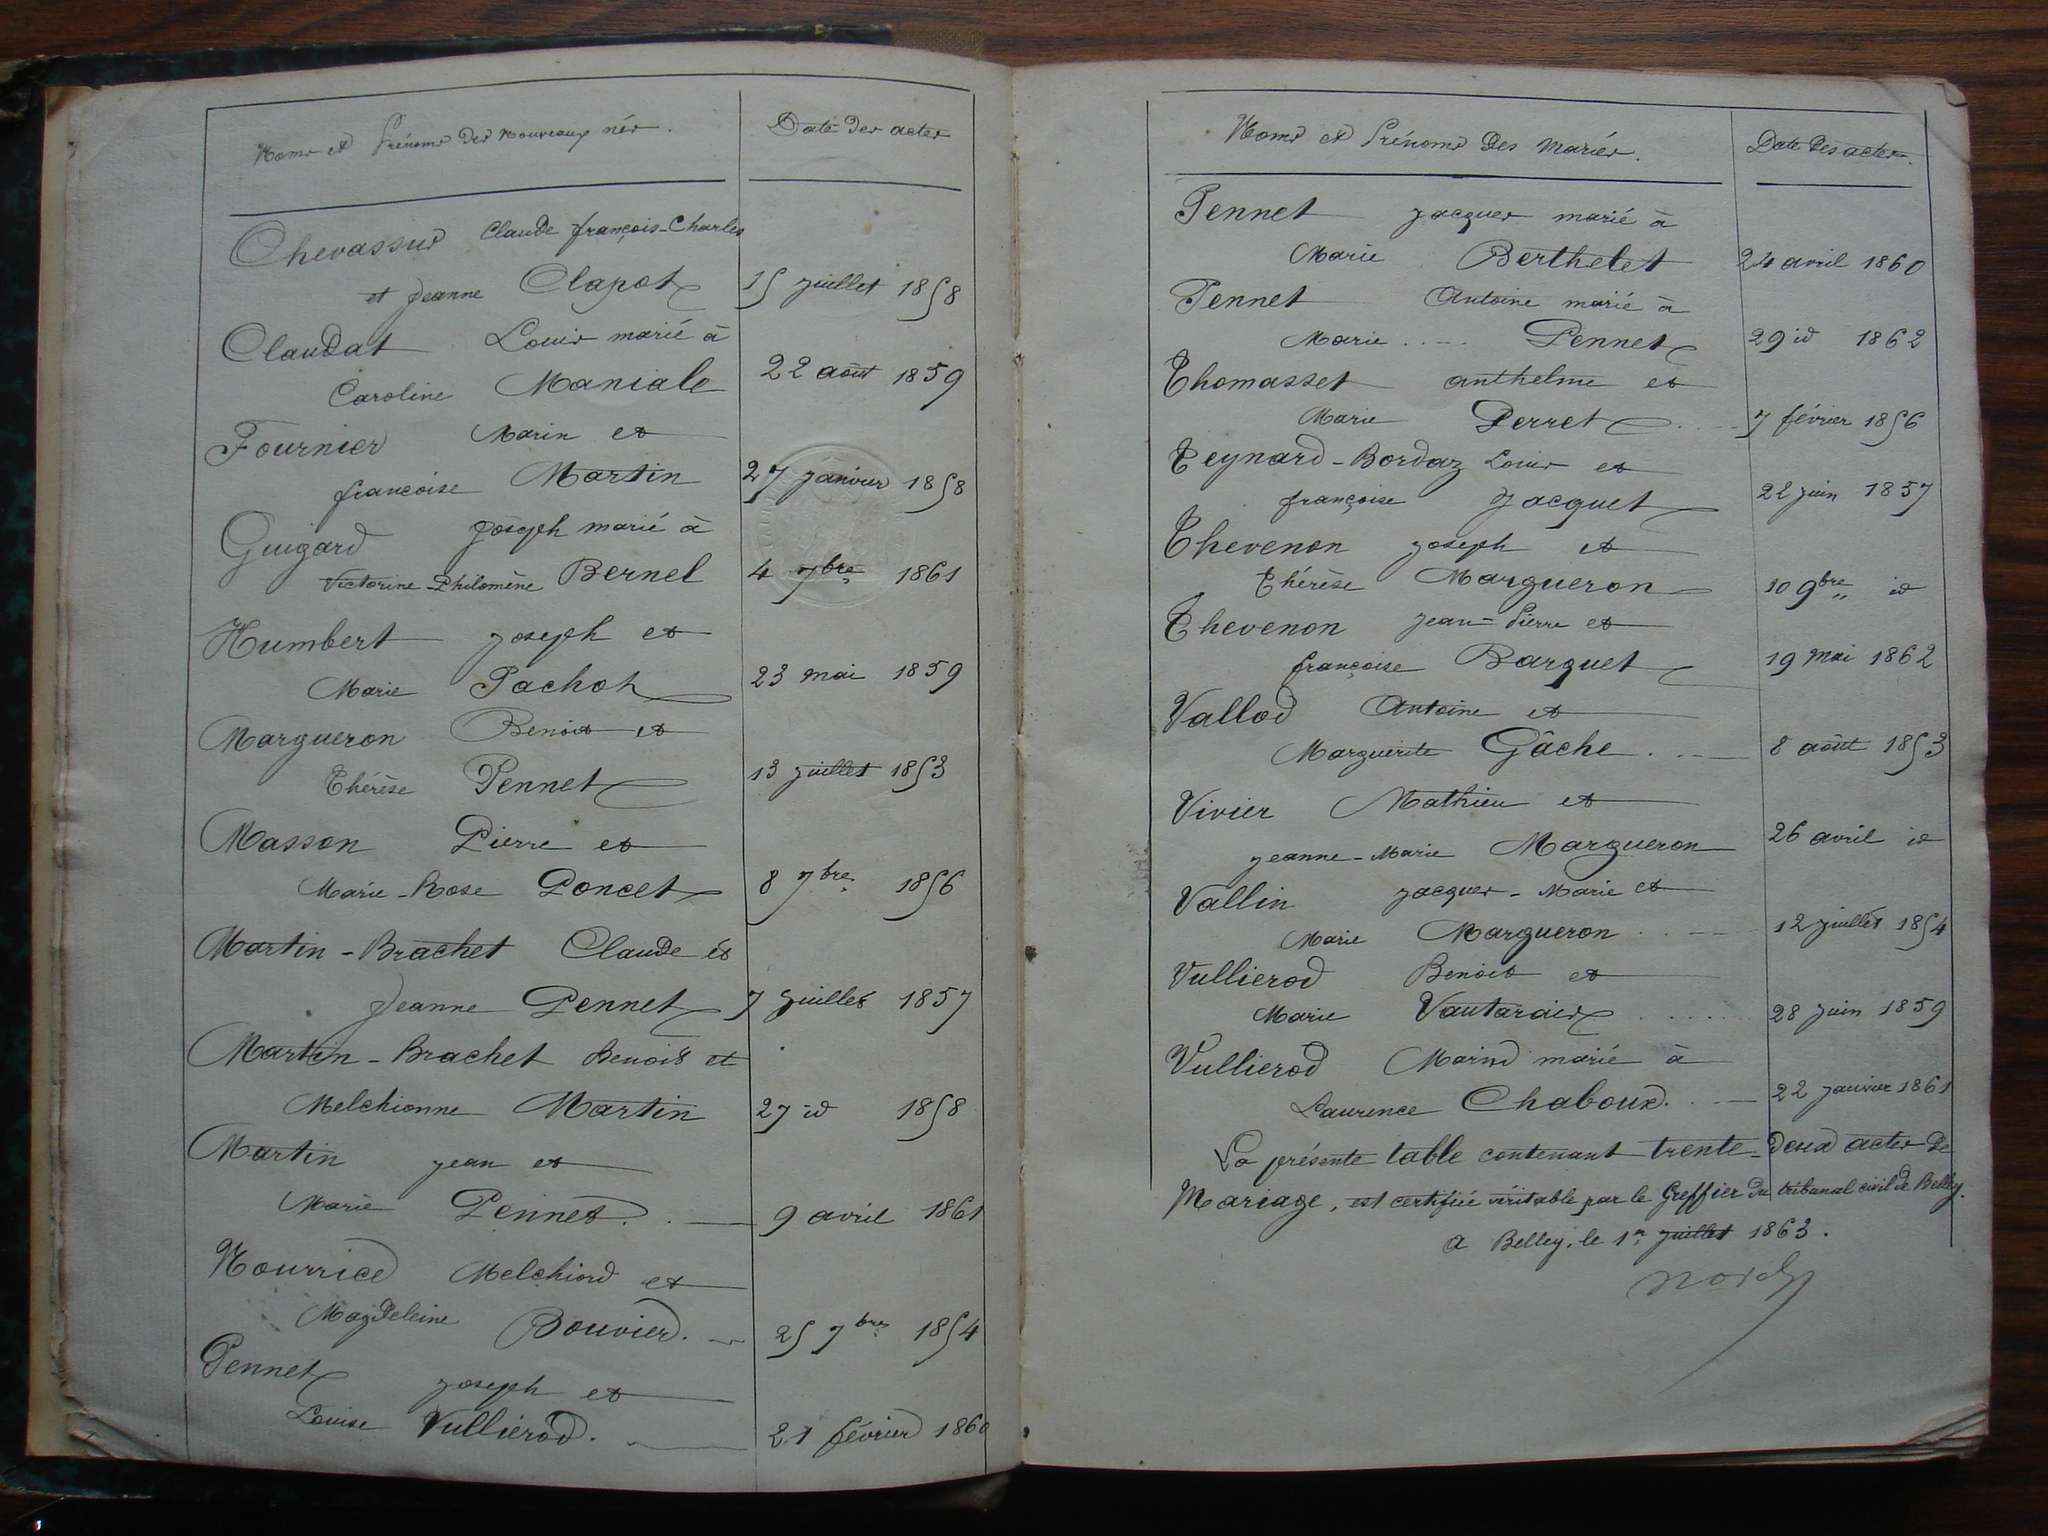 Noms et Prénoms des Nouveaux nés. Date des actes
Chevassus Claude françois-Charles
et Jeanne Clapot 15 juillet 1858
Claudat Louis marié à
Caroline Maniale 22 août 1859
Fournier Marin et
françoise Martin 27 janvier 1858
Guigard joseph marié à
Victorine-Philomène Bernel 4 7bre 1861
Humbert joseph et
Marie Pachot 23 mai 1859
Margueron Benoit et
Thérèse Pennet 13 juillet 1853
Masson Pierre et
Marie-Rose Poncet 8 7bre 1856
Martin-Brachet Claude et
Jeanne Pennet 7 juillet 1857
Martin-Brachet Benoit et
Melchionne Martin 27 id 1858
Martin jean et
Marie Pennet. 9 avril 1861
Nourrice Melchior et
Magdeleine Bouvier. 25 7bre 1854
Pennet joseph et
Louise Vullierod. 21 février 1860
Noms et Prénoms Des Mariés. Date des actes.
Pennet jacques marié à
Marie Berthelet 24 avril 1860
Pennet Antoine marié à
Marie Pennet 29 id 1862
Thomasset anthelme et
Marie Perret 7 février 1856
Teynard-Bordaz Louis et
françoise jacquet 22 juin 1857
Thevenon joseph et
Thérèse Margueron 10 9bre id
Thevenon jean-Pierre et
françoise Barquet 19 mai 1862
Vallod Antoine et
Marguerite Gâche 8 août 1853
Vivier Mathieu et
jeanne-Marie Margueron 26 avril id
Vallin jacques-Marie et
Marie Margueron 12 juillet 1854
Vullierod Benoit et
Marie Vautaraix 28 juin 1859
Vullierod marié à
Laurence Chaboux. 22 janvier 1861
La présente table contenant trente-deux actes de
Mariage, est certifiée véritable par le Greffier du tribunal civil de Belley.
a Belley, le 1er juillet 1863.